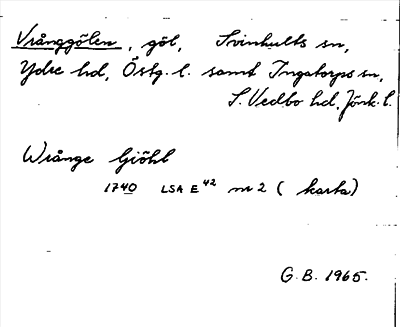 Vrånggölen, göl, Svinhults sn,
Ydre hd, Östg. l. samt Ingatorps sn,
S. Vedbo hd, Jönk. l.
Wrånge Giöhl
1740 LSA E 42 nr 2 ( karta)
G. B. 1965.